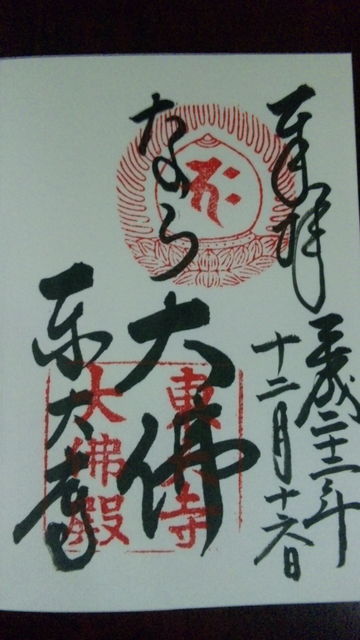 奉拝
平成二十二年
十二月十六日
なら
大佛
東大寺
東大寺
大佛殿